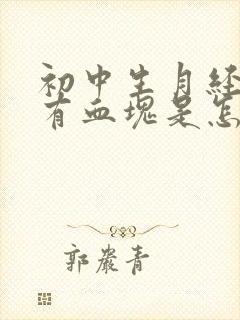 初中生月经
有血块是怎
郭严青